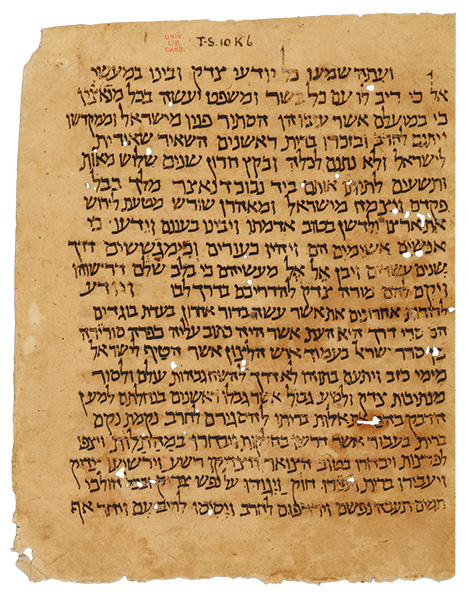 UNIV.
LIB.
CAMB.
T-S. 10 K 6
ועתה שמעו כל יודעי צדק ובינו במעשי
אל כי ריב לו עם כל בשר ומשפט יעשה בכל מנאציו
כי במועלם אשר עזבוהו הסתיר פניו מישראל וממקדשו
ויתנם לחרב ובזכרו ברית ראשנים השאיר שאירית
לישראל ולא נתנם לכלה ובקץ חרון שנים שלוש מאות
ותשעים לתיתו אותם ביד נבוכדנאצר מלך בבל
פקדם ויצמח מישראל ומאהרן שורש מטעת לירוש
את ארצו ולדשן בטוב אדמתו ויבינו בעונם וידעו כי
אנשים אשימים הם ויהיו כעורים וכימגששים דרך
שנים עשרים ויבן אל אל מעשיהם כי בלב שלם דרשוהו
ויקם להם מורה צדק להדריכם בדרך לבו ויודע
לדורות אחרונים את אשר עשה בדור אחרון בעדת בוגדים
הם סרי דרך היא העת אשר היה כתוב עליה כפרה סורירה
כן סרר ישראל בעמוד איש הלצון אשר הטיף לישראל
מימי כזב ויתעם בתוהו לא דרך להשח גבהות עולם ולסור
מנתיבות צדק ולסיע גבול אשר גבלו ראשנים בנחלתם למען
הדבק בהם את אלות בריתו להסגירם לחרב נקמת נקם
ברית בעבור אשר דרשו בחלקות ויבחרו במהתלות ויצפו
לפרצות ויבחרו בטוב הצואר ויצדיקו רשע וירשיעו צדיק
ויעבירו ברית ויפירו חוק ויגודו על נפש צדיק ובכל הולכי
תמים תעבה נפשם וירדפום לחרב ויסיסו לריב עם ויחר אף